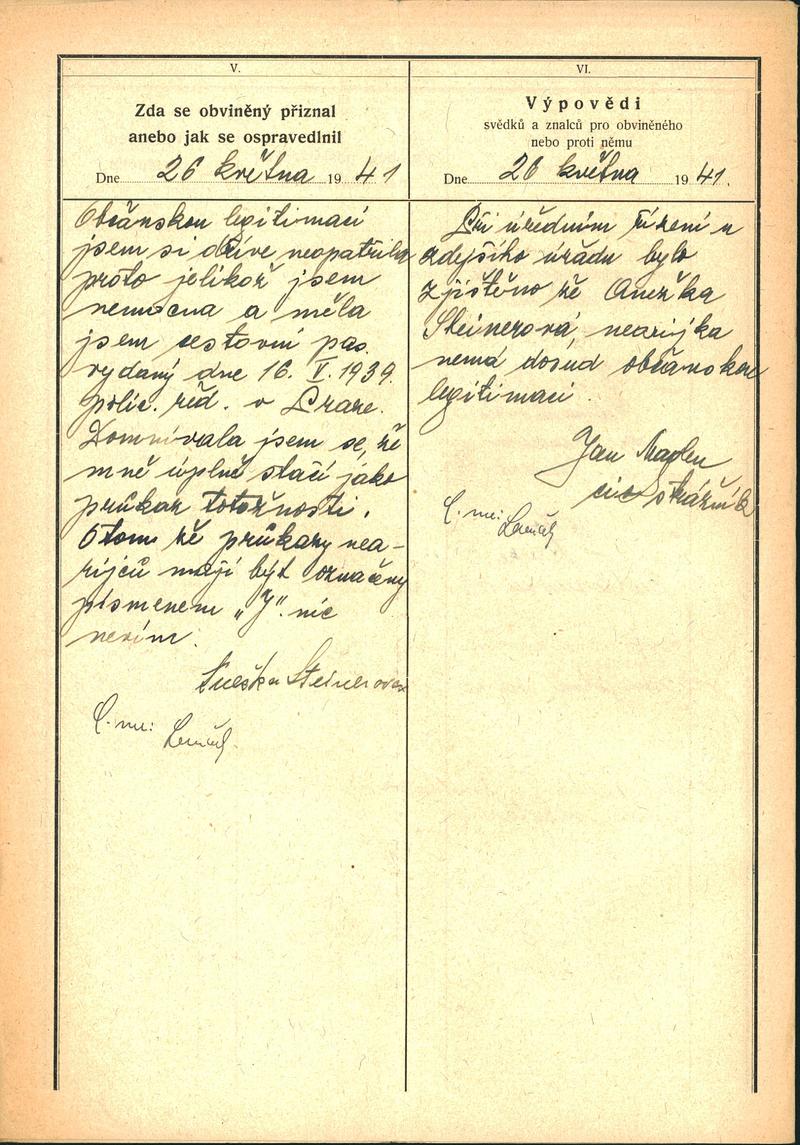 V.
Zda se obviněný přiznal
anebo jak se ospravedlnil
Dne 26 května 1941
Občanskou legitimaci
jsem si dříve neopatřila
proto jelikož jsem
nemocna a měla
jsem cestovní pas
vydaný dne 16. V. 1939.
polic. řed. v Praze.
Domnívala jsem se, že
mně úplně stačí jako
průkaz totožnosti.
O tom že průkazy nea-
rijců mají být označeny
písmenem „J". nic
nevím.
Anežka Steinerová
VI.
Výpovědi
svědků a znalců pro obviněného
nebo proti němu
Dne 26 května 1941.
Při úředním řízení u
zdejšího úřadu bylo
zjištěno že Anežka
Steinerová, nearijka
nemá dosud občanskou
legitimaci.
Jan
strážník